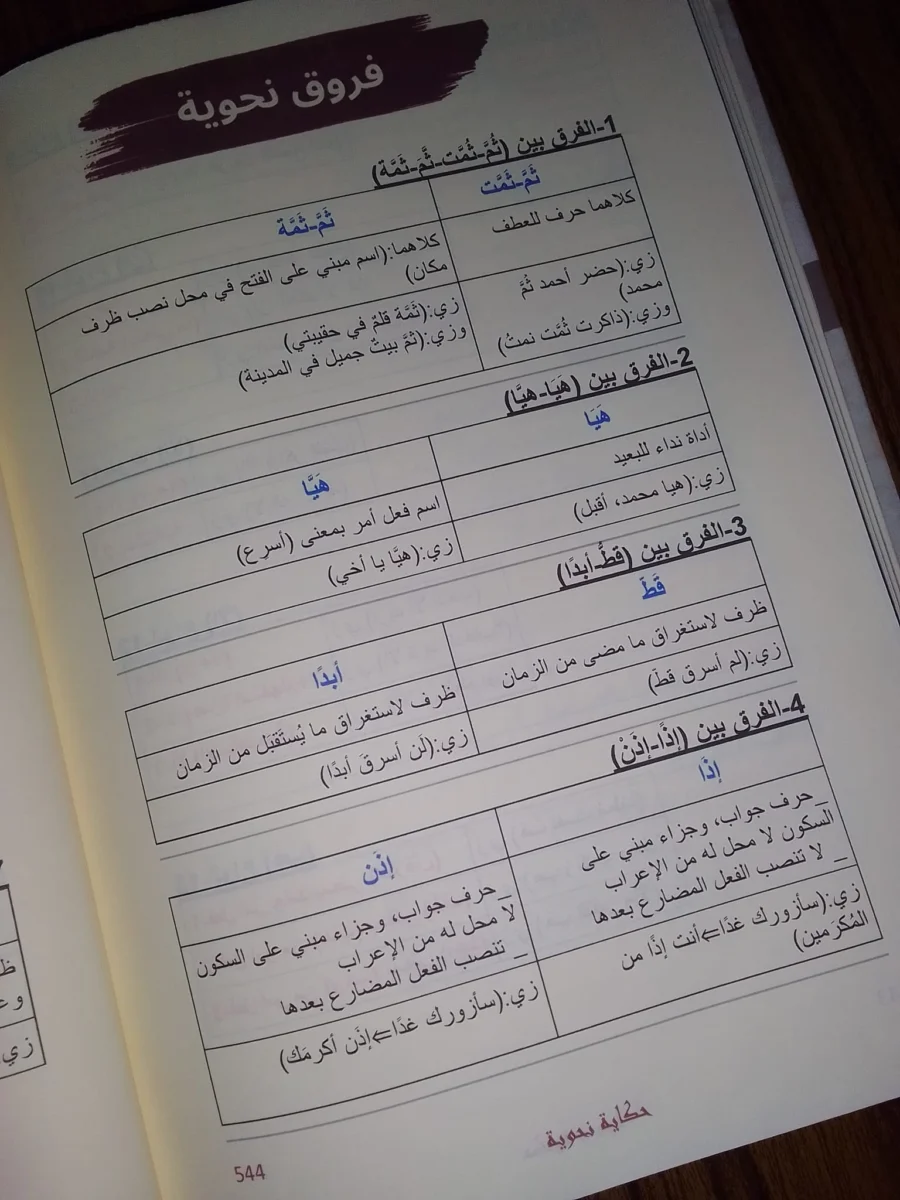 فروق نحوية
1-الفرق بين (ثُمَّ-ثُمَّت-ثَّمَ-ثَمَّة)
ثُمَّ-ثُمَّت
كلاهما حرف للعطف
زي:(حضر أحمد ثُمَّ
محمد)
وزي:(ذاكرت ثُمَّت نمتُ)
ثَمَّ-ثَمَّة
كلاهما:(اسم مبني على الفتح في محل نصب ظرف
مكان)
زي:(ثَمَّة قلمٌ في حقيبتي)
وزي:(ثَمَّ بيتٌ جميل في المدينة)
2-الفرق بين (هَيَا-هيَّا)
هَيَا
أداة نداء للبعيد
زي:(هيا محمد، أقبل)
هَيَّا
اسم فعل أمر بمعنى (أسرع)
زي:(هيَّا يا أخي)
3-الفرق بين (قطُّ-أبدًا)
قَطّ
ظرف لاستغراق ما مضى من الزمان
زي:(لم أسرق قطّ)
أبدًا
ظرف لاستغراق ما يُستَقبَل من الزمان
زي:(لَن أسرقَ أبدًا)
4-الفرق بين (إذًا-إذَنْ)
إذًا
_حرف جواب، وجزاء مبني على
السكون لا محل له من الإعراب
_ لا تنصب الفعل المضارع بعدها
زي:(سأزورك غدًا⇐أنت إذًا من
المُكرَمين)
إذَن
_حرف جواب، وجزاء مبني على السكون
لا محل له من الإعراب
_ تنصب الفعل المضارع بعدها
زي:(سأزورك غدًا⇐إذَن أكرمَك)
حكاية نحوية
544
ظ
زي: